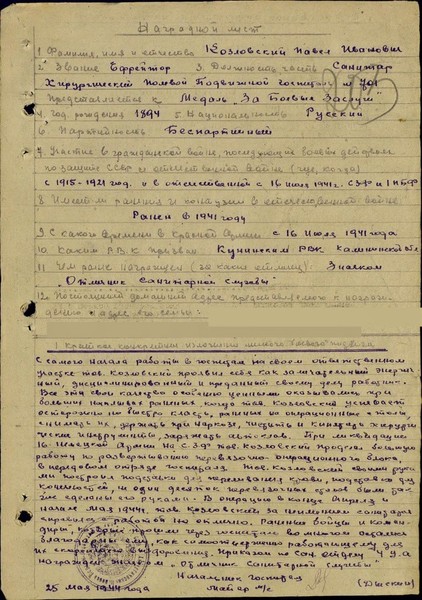 Наградной лист
1. Фамилия, имя и отчество Козловский Павел Иванович
2. Звание Ефрейтор 3. Должность, часть Санитар
Хирургический Полевой Подвижной Госпиталь №
Представляется к Медаль "За Боевые Заслуги"
4. Год рождения 1894 5. Национальность Русский
6. Партийность Беспартийный
7. Участие в гражданской войне, последующие боевые действия
по защите СССР и отечественной войне (где, когда)
с 1915-1921 год. и в отечественной с 16 июля 1941г.
8. Имеет ли ранения и контузии в отечественной войне
Ранен в 1941 году
9. С какого времени в Красной Армии с 16 июля 1941 года
10. Каким Р.В.К. призван РВК Калининской
11. Чем ранее награжден (за какие отлич.) Значком
"Отличник Санитарной службы"
12. Постоянный домашний адрес представляемого к награж-
дению и адрес его семьи:
1. Краткое конкретное изложение личного боевого подвига
С самого начала работы в госпитале на своем ответственном
участке тов. Козловский проявил себя как замечательный энергич-
ный, дисциплинированный и преданный своему делу работник.
Все эти свои качества особенно ценными оказывались при
больших потоках ранения когда тов. Козловский успевает
осторожно но быстро класть раненых на операционные столы,
снимать их, держать при наркозе, чистить и кипятить хирурги-
ческие инструменты, заряжать автоклав. При ликвидации
16 Немецкой Армии на С.З.Ф. тов. Козловский проделал большую
работу по развертыванию перевязочно-операционного блока
в передовом отряде госпиталя. Тов. Козловский своими рука-
ми построил подставки для переливания крови, подставки для
конечностей и один десяток перевязочных столов были так-
же сделаны его руками. В операцию в конце апреля
начале мая 1944г. тов. Козловский за санитара
справился с работой на отлично. Раненые бойцы и коман-
диры, которые прошли через госпиталь во многом остались
благодарны ему, как самоотверженно работающему для
их скорейшего выздоровления. Приказом по Сан. отделу 4 У.А
награжден значком "Отличник Санитарной службы"
Начальник госпиталя
25 мая 1944 года Майор м/с